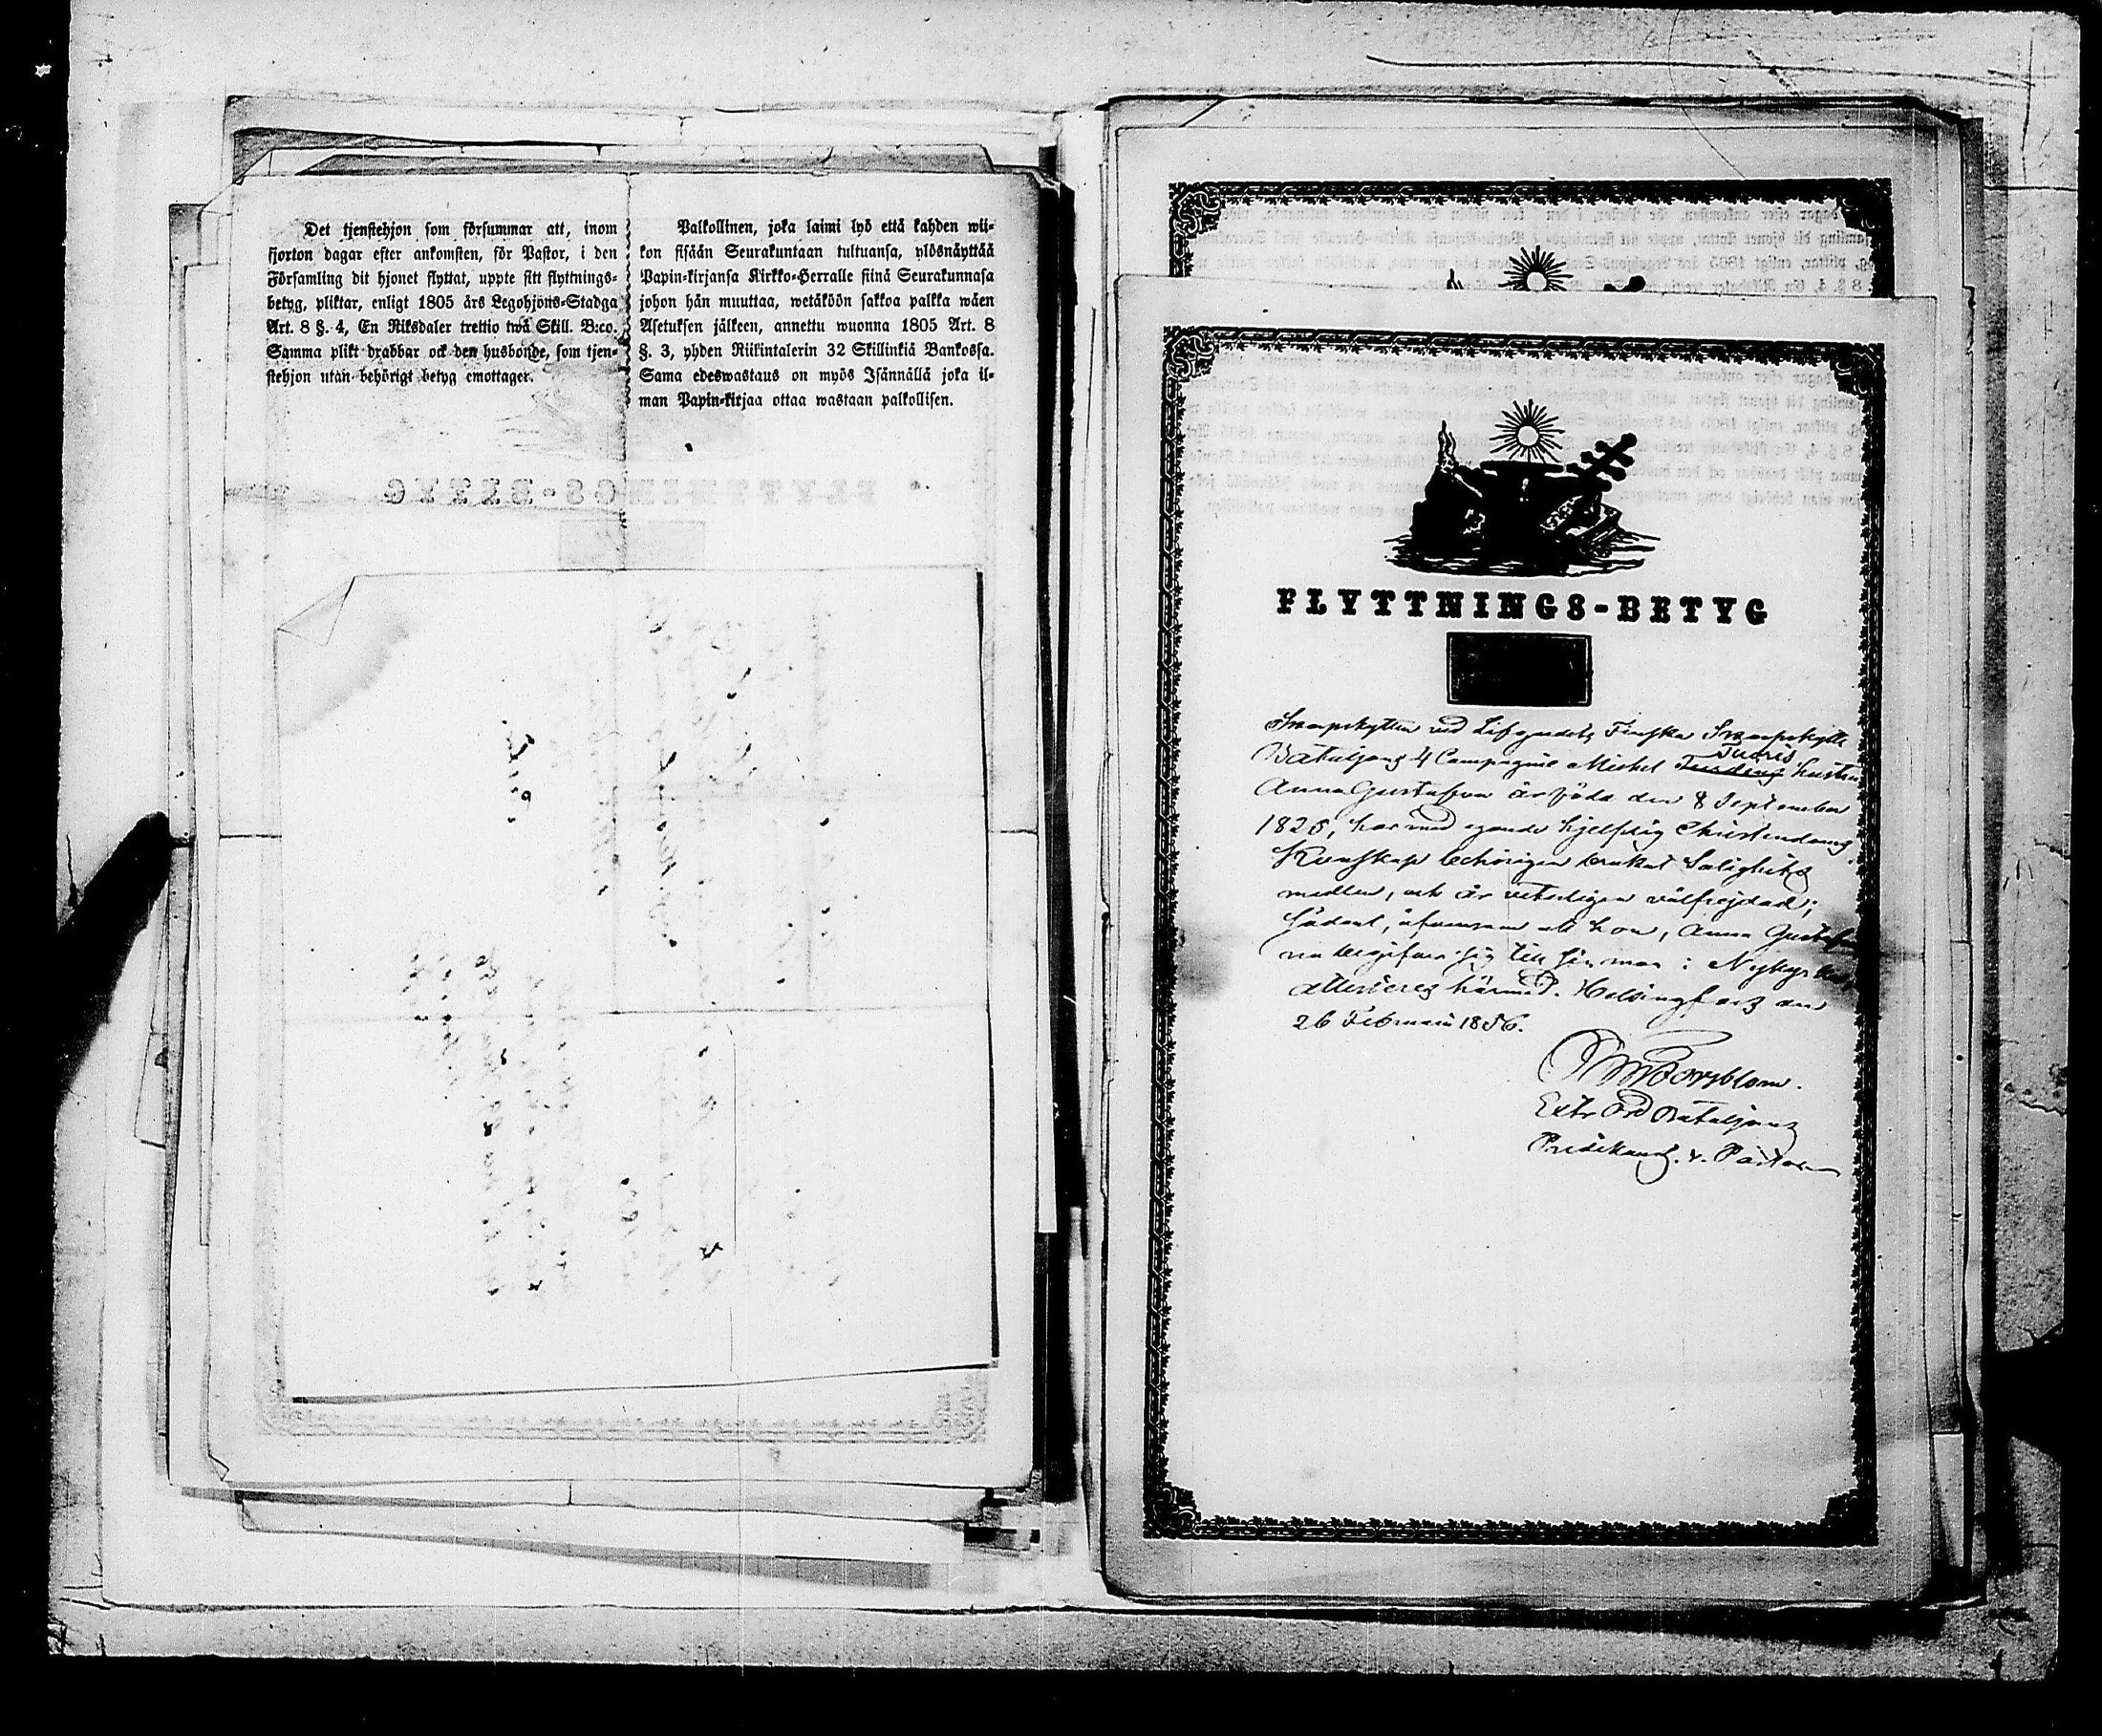 Det tjenstehjon som försummar att, inom
fjorton dagar efter ankomsten, för Pastor, i den
Församling dit hjonet flyttat, uppte sitt flyttnings-
betyg, pliktar, enligt 1805 års Legohjons-Stadga
Art. 8 §. 4, En Riksdaler trettio twå Skill. B:co.
Samma plikt drabbar ock den husbonde, som tjen-
stehjon utan behörigt betyg emottager.
Palkollinen, joka laimi lyö että kahden wii-
kon sisään Seurakuntaan tultuansa, ylösnäyttää
Papin-kirjansa Kirkko-Herralle siinä Seurakunnasa
johon hän muuttaa, wetäköön sakkoa palkka wäen
Asetuksen jälkeen, annettu wuonna 1805 Art. 8
§. 3, yhden Riikintalerin 32 Skillinkiä Bankossa.
Sama edeswastaus on myös Isännällä joka il-
man Papin-kirjaa ottaa wastaan palkollisen.
FLYTTNINGS-BETYG
Skarpskytten vid Lifgardets Finska Skarpskytte
Bataljons 4 Compagnie Michel Tuoris hustru
Anna Gustafsson är född den 8 September
1825, har med egande hjelplig Christendoms
Kunskap behörigen brukat Salighets
medlen, och är veterligen välfrejdad;
Sådant, äfvensom att hon, Anna Gustafs
begifver sig till sin man i Nykyrka
attesteras härmed. Helsingfors den
26 Februari 1856.
Forsblom.
Extr Ord Bataljons
Predikant. v. Pastor